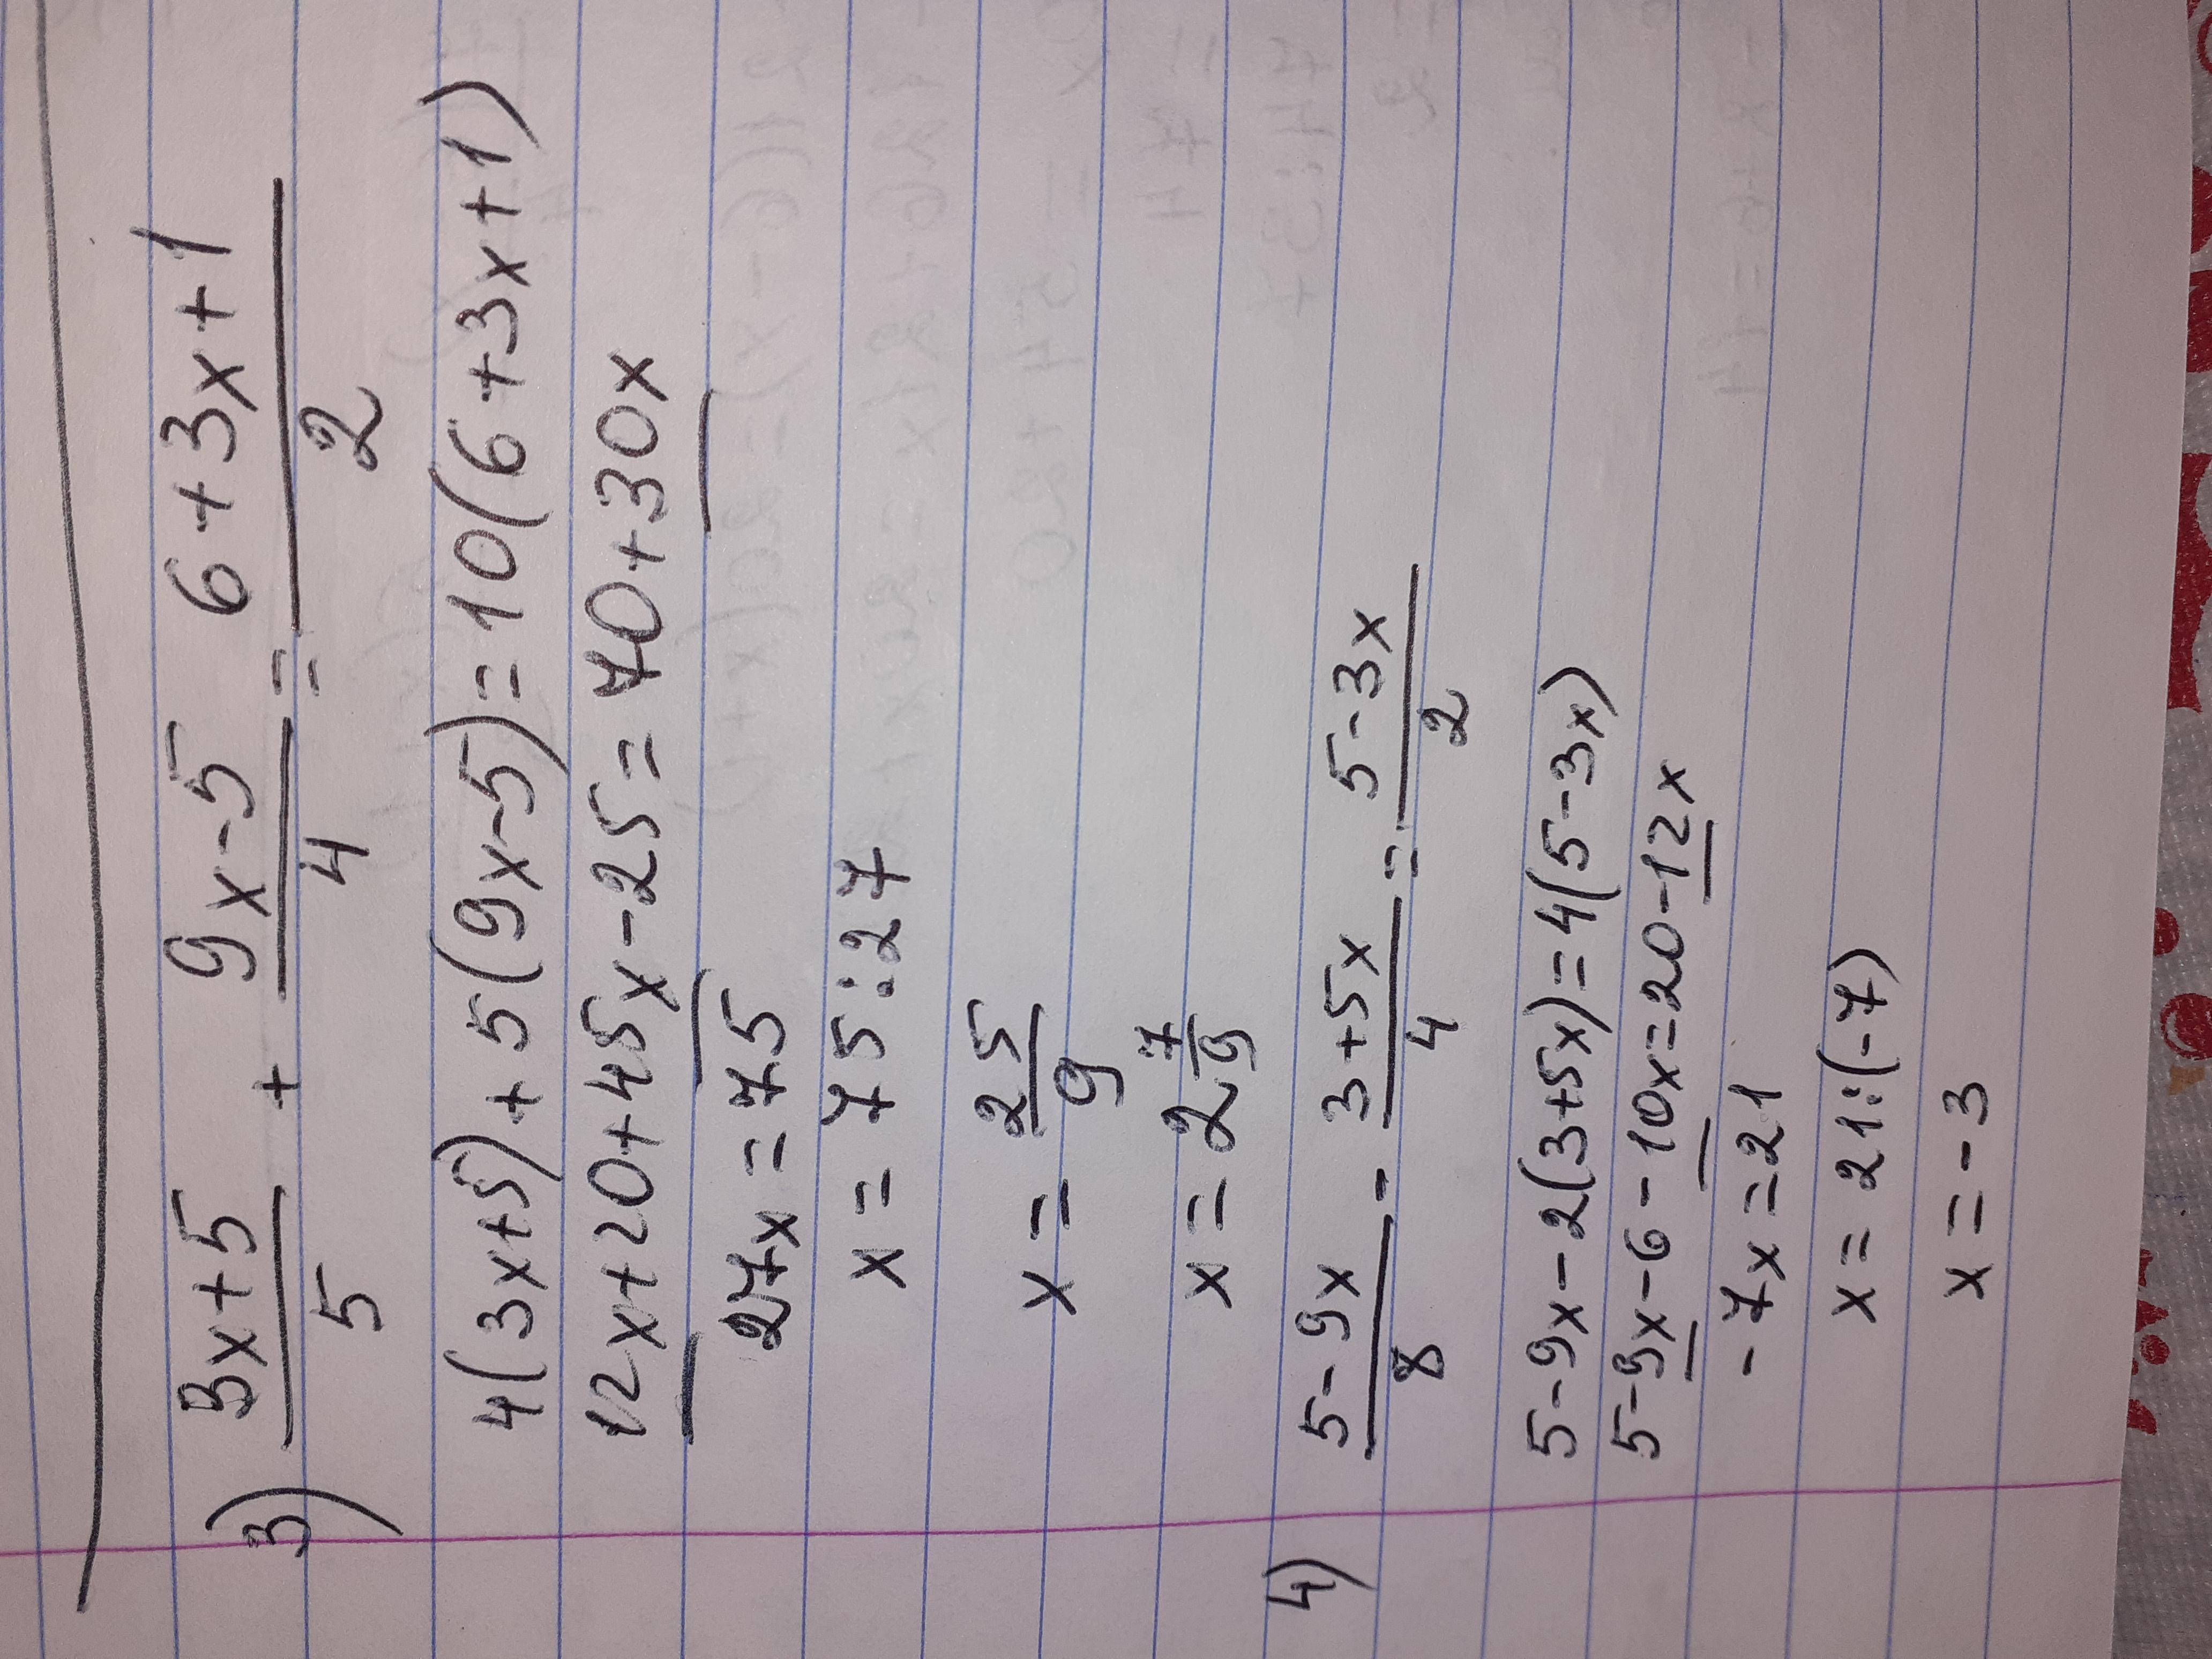 3) (3x+5)/5 + (9x-5)/4 = (6+3x+1)/2
4(3x+5)+5(9x-5)=10(6+3x+1)
12x+20+45x-25=70+30x
27x=75
x=75:27
x=25/9
x=2 7/9
4) (5-9x)/8 - (3+5x)/4 = (5-3x)/2
5-9x-2(3+5x)=4(5-3x)
5-9x-6-10x=20-12x
-7x=21
x=21:(-7)
x=-3